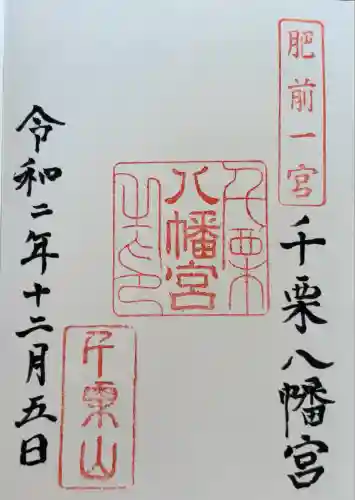 肥前一宮
千栗八幡宮
千栗
八幡宮
千栗山
令和二年十二月五日